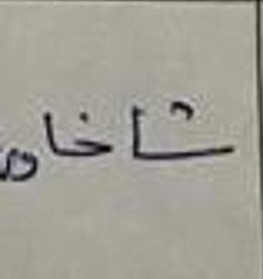 شاخاو